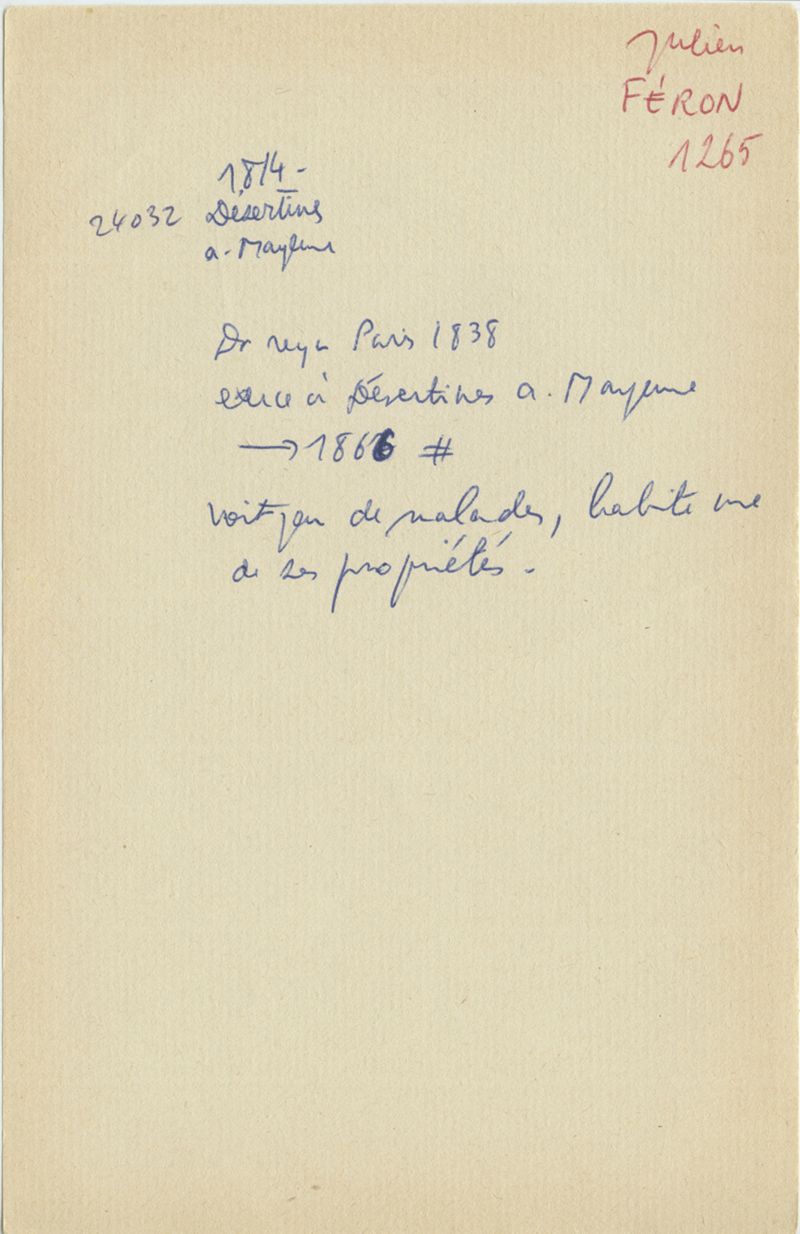 Julien
FÉRON
1265
1814-
24032 Désertines
a. Mayenne
Dr reçu Paris 1838
exerce à Désertines a. Mayenne
→ 1866 #
voit peu de malades, habite une
de ses propriétés.